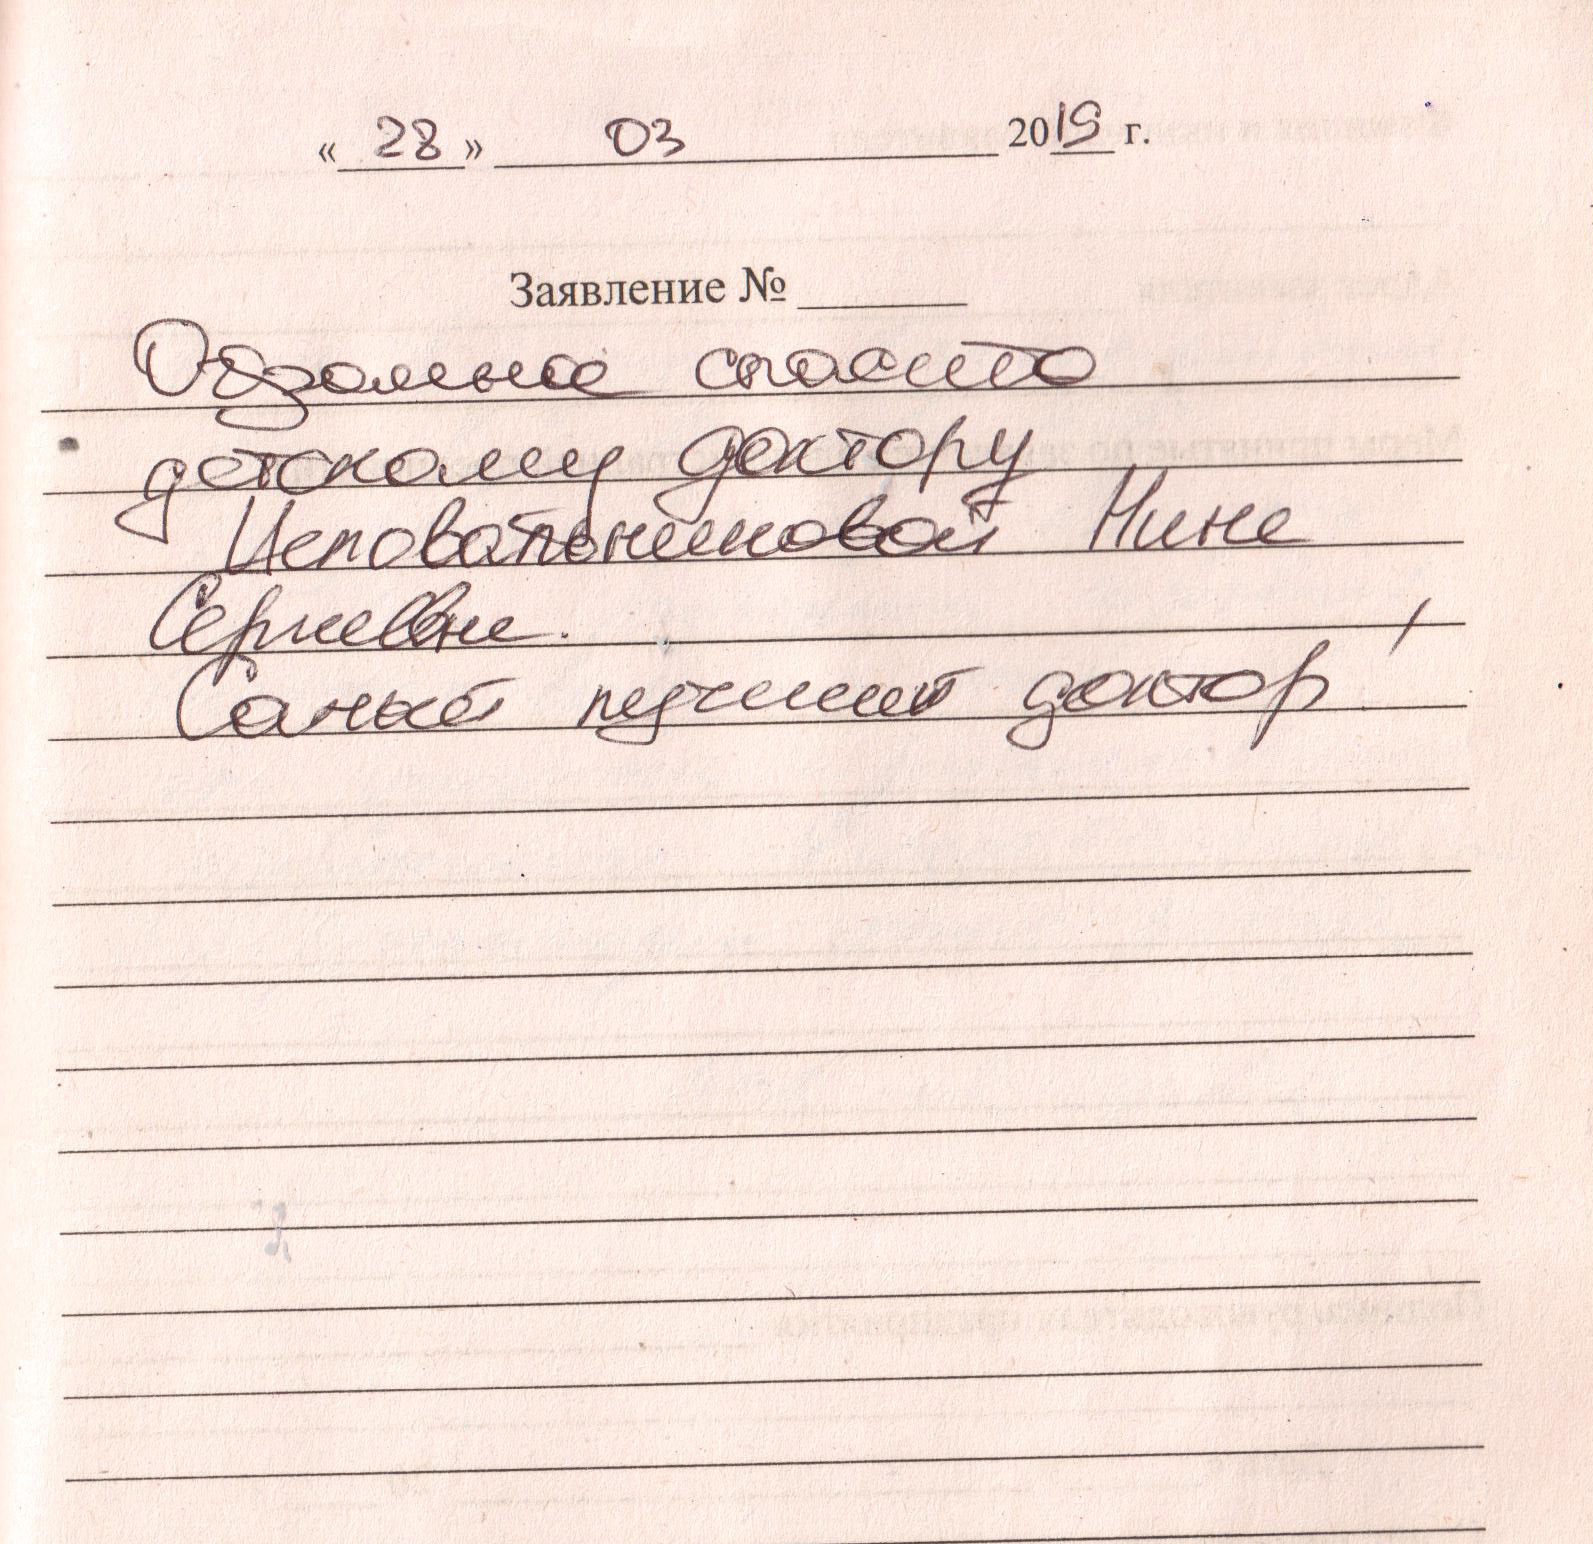 « 28 » 03 2019 г.
Заявление №
Огромное спасибо
детскому доктору
Целовальниковой Нине
Сергеевне.
Самый лучший доктор!